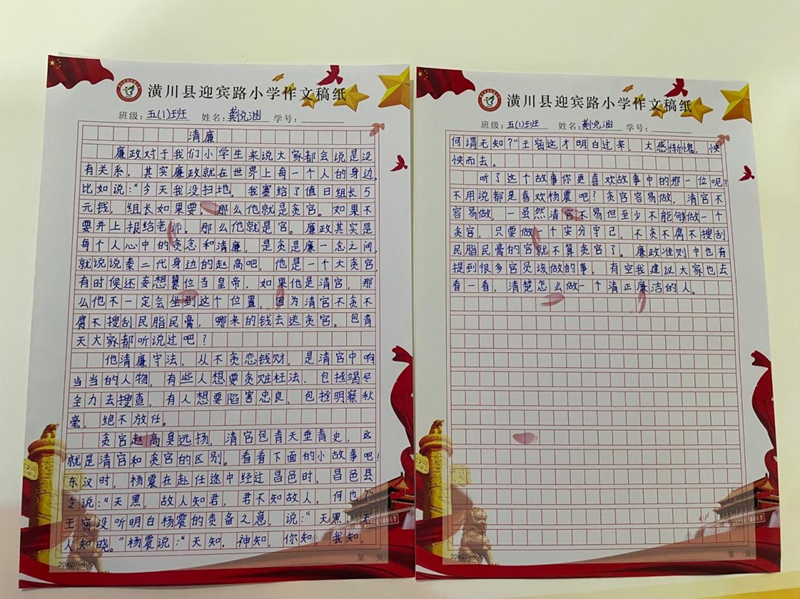 潢川县迎宾路小学作文稿纸
班级：五(1)班 姓名：龚悦涵 学号：
清廉
廉政对于我们小学生来说大家都会说是没
有关系，其实廉政就在世界上每一个人的身边，
比如说：“今天我没扫地，我塞给了值日组长5
元钱，组长如果要，那么他就是贪官。如果不
要并上报给老师，那么他就是官。廉政其实是
每个人心中的贪恋和清廉，是贪是廉一念之间
就说说秦二代身边的赵高吧，他是一个大贪官，
有时候还妄想篡位当皇帝，如果他是清官，那
么他不一定会坐到这个位置，因为清官不贪不
腐不搜刮民脂民膏，哪来的钱去送贪官。包青
天大家都听说过吧？
他清廉守法，从不贪恋钱财，是清官中响
当当的人物，有些人想要贪赃枉法，包拯竭尽
全力去搜查，有人想要陷害忠良，包拯明察秋
毫，绝不放任。
贪官赵高臭远扬，清官包青天垂青史，这
就是清官和贪官的区别。看看下面的小故事吧！
东汉时，杨震在赴任途中经过昌邑时，昌邑县
令说：“天黑，故人知君，君不知故人，何也？”
王密没听明白杨震的责备之意，说：“天黑，无
人知晓。”杨震说：“天知，神知，你知，我知，
20×20=400
第 页
潢川县迎宾路小学作文稿纸
班级：五(1)班 姓名：龚悦涵 学号：
何谓无知？”王密这才明白过来，大感惭愧，怏
怏而去。
听了这个故事你更喜欢故事中的那一位呢？
不用说都是喜欢杨震吧？贪官容易做，清官不
容易做，虽然清官不易但至少不能够做一个
贪官，只要做一个安分守己，不贪不腐不搜刮
民脂民膏的官就不算贪官了。廉政准则中也有
提到很多官员该做的事，有空我建议大家也去
看一看，清楚怎么做一个清正廉洁的人。
20×20=400
第 页